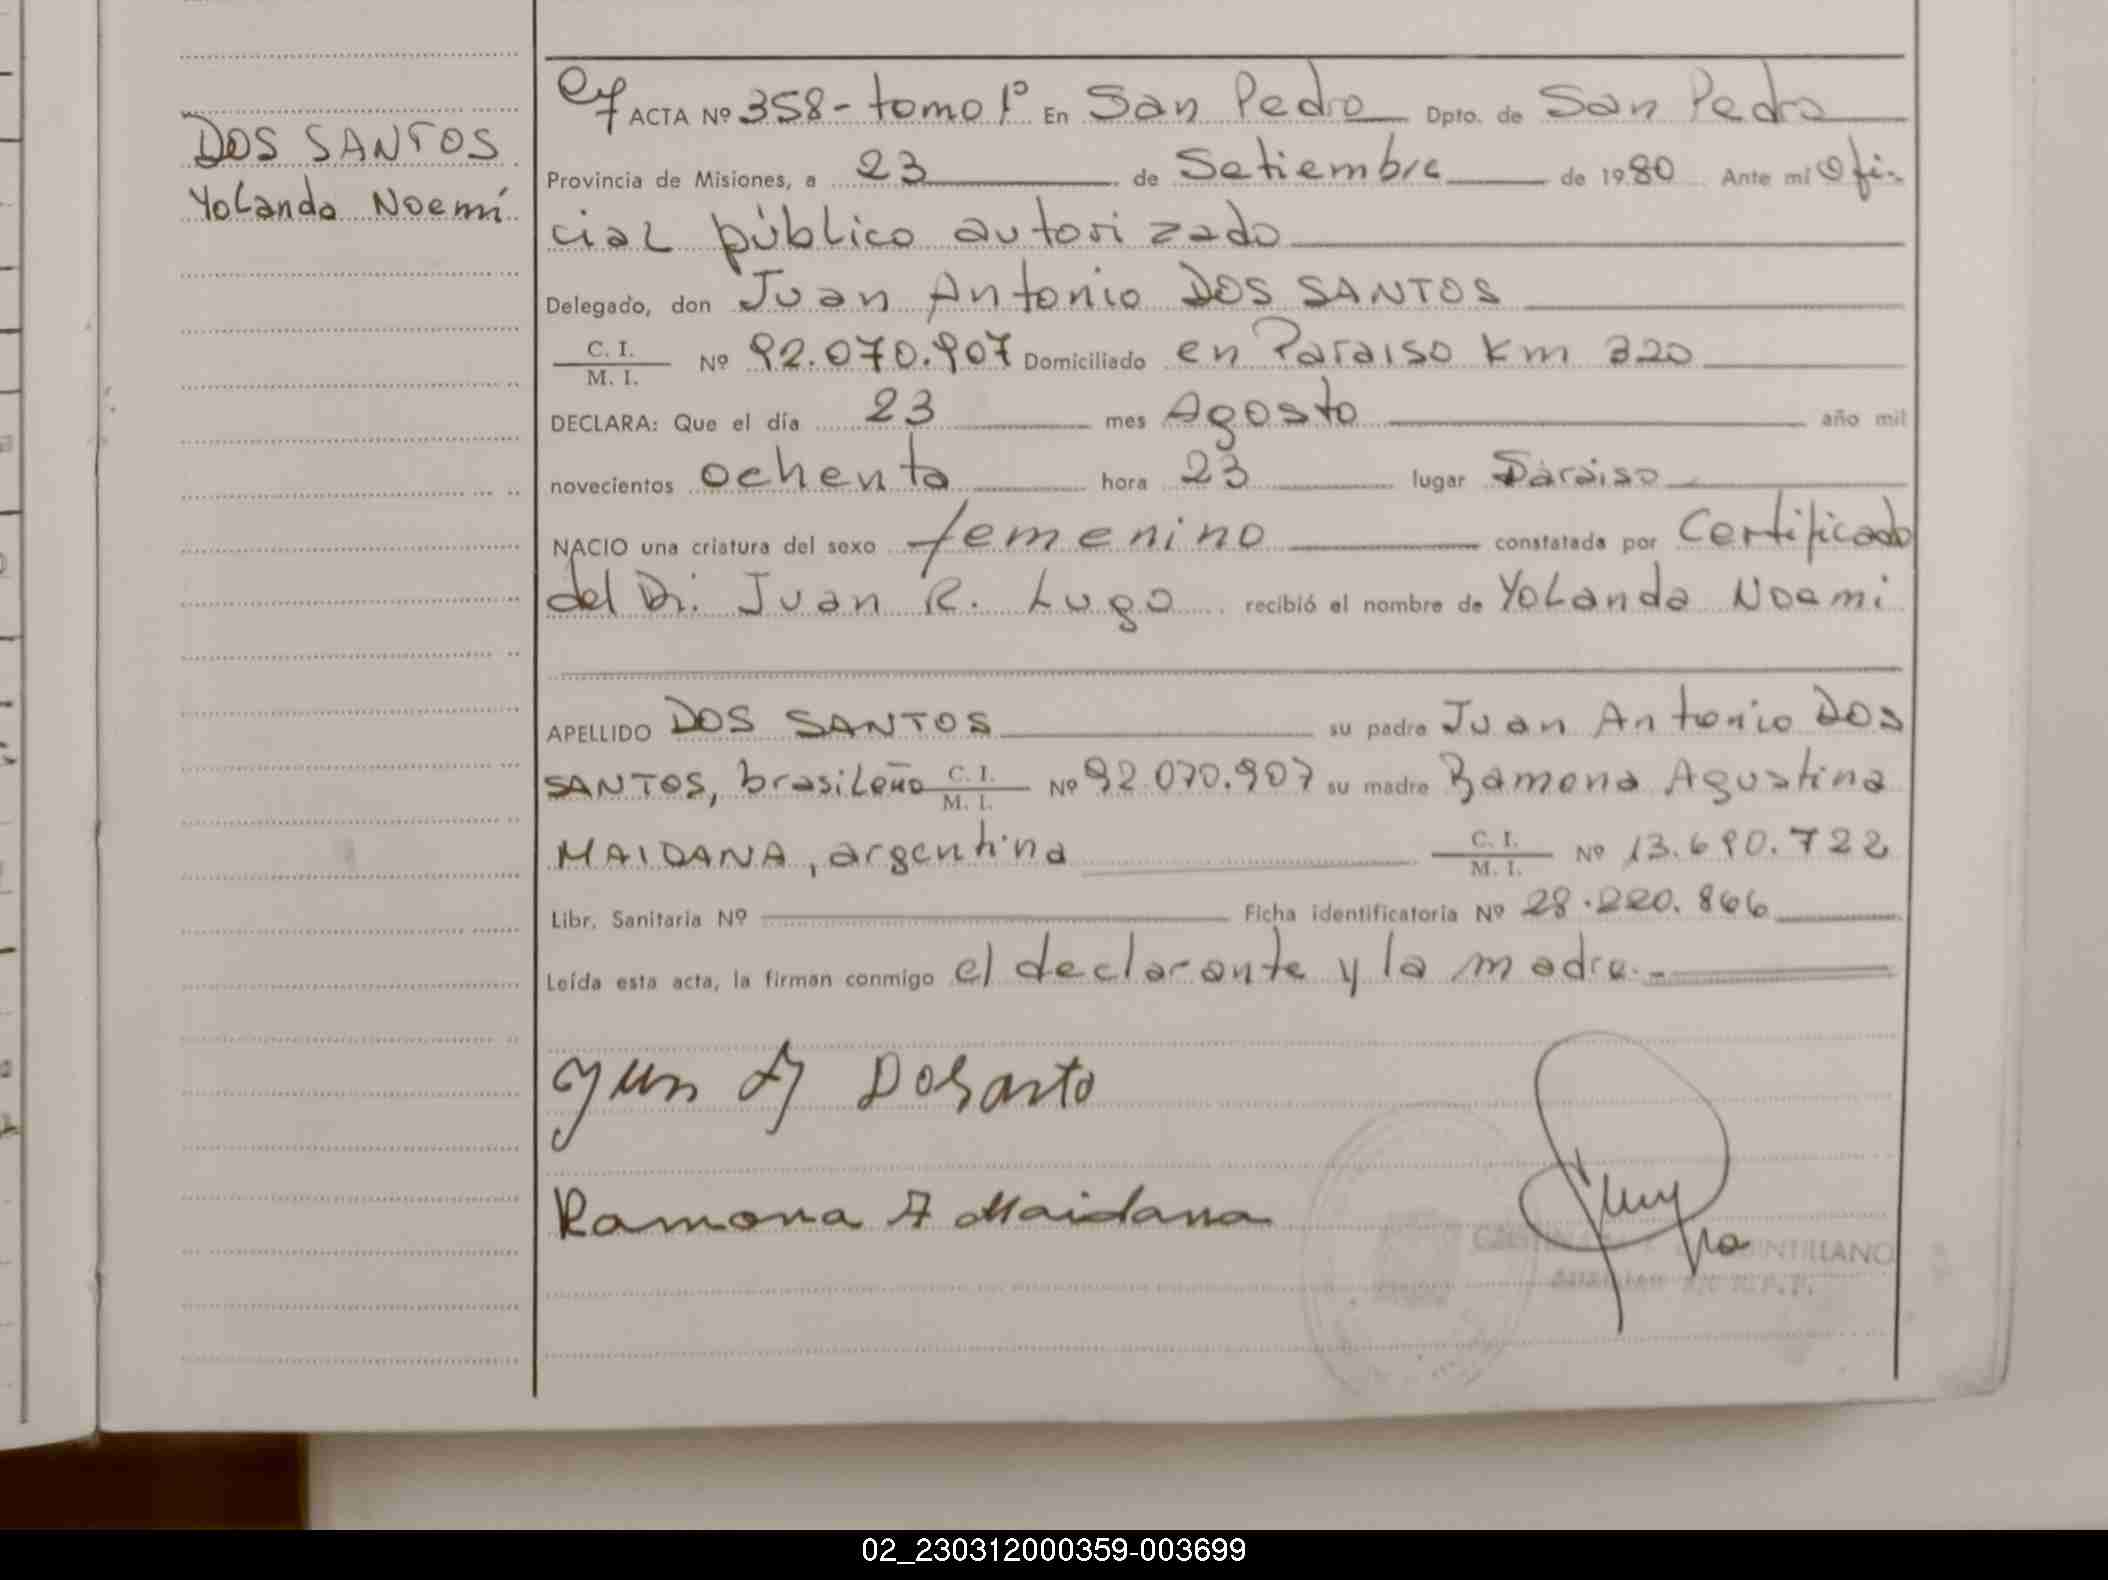 DOS SANTOS
Yolanda Noemí
ACTA Nº 358 - tomo 1º En San Pedro Dpto. de San Pedro
Provincia de Misiones, a 23 de Setiembre de 1980 Ante mi Ofi-
cial público autorizado
Delegado, don Juan Antonio DOS SANTOS
C. I. / M. I. Nº 92.070.907 Domiciliado en Paraiso Km 320
DECLARA: Que el día 23 mes Agosto año mil
novecientos ochenta hora 23 lugar Paraiso
NACIO una criatura del sexo femenino constatada por Certificado
del Dr. Juan R. Lugo recibió el nombre de Yolanda Noemi
APELLIDO DOS SANTOS su padre Juan Antonio DOS
SANTOS, brasileño C. I. / M. I. Nº 92.070.907 su madre Ramona Agustina
MAIDANA, argentina C. I. / M. I. Nº 13.690.722
Libr. Sanitaria Nº Ficha identificatoria Nº 28.220.866
Leída esta acta, la firman conmigo el declarante y la madre.-
Juan A DoSanto
Ramona A Maidana
QUINTILLANO
02_230312000359-003699